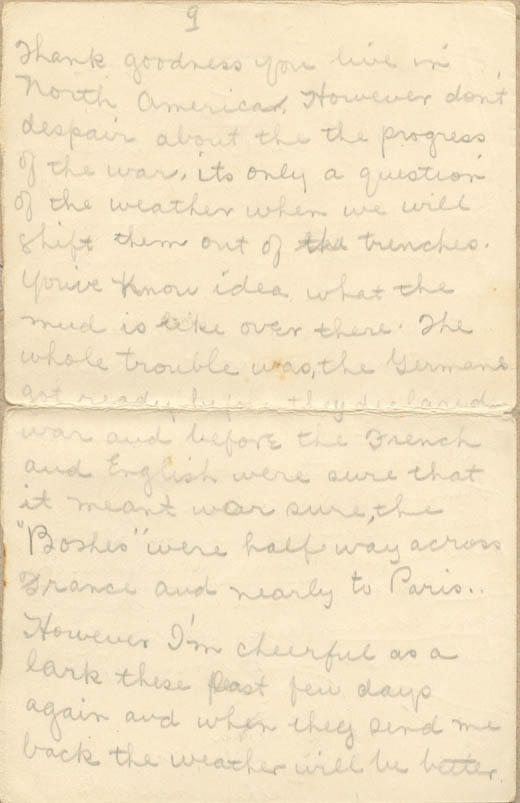 9
Thank goodness you live in
North America. However don't
despair about the the progress
of the war, its only a question
of the weather when we will
shift them out of the trenches.
You've know idea what the
mud is like over there. The
whole trouble was, the Germans
got ready before they declared
war and before the French
and English were sure that
it meant war sure, the
"Boshes" were half way across
France and nearly to Paris..
However I'm cheerful as a
lark these past few days
again and when they send me
back the weather will be better.